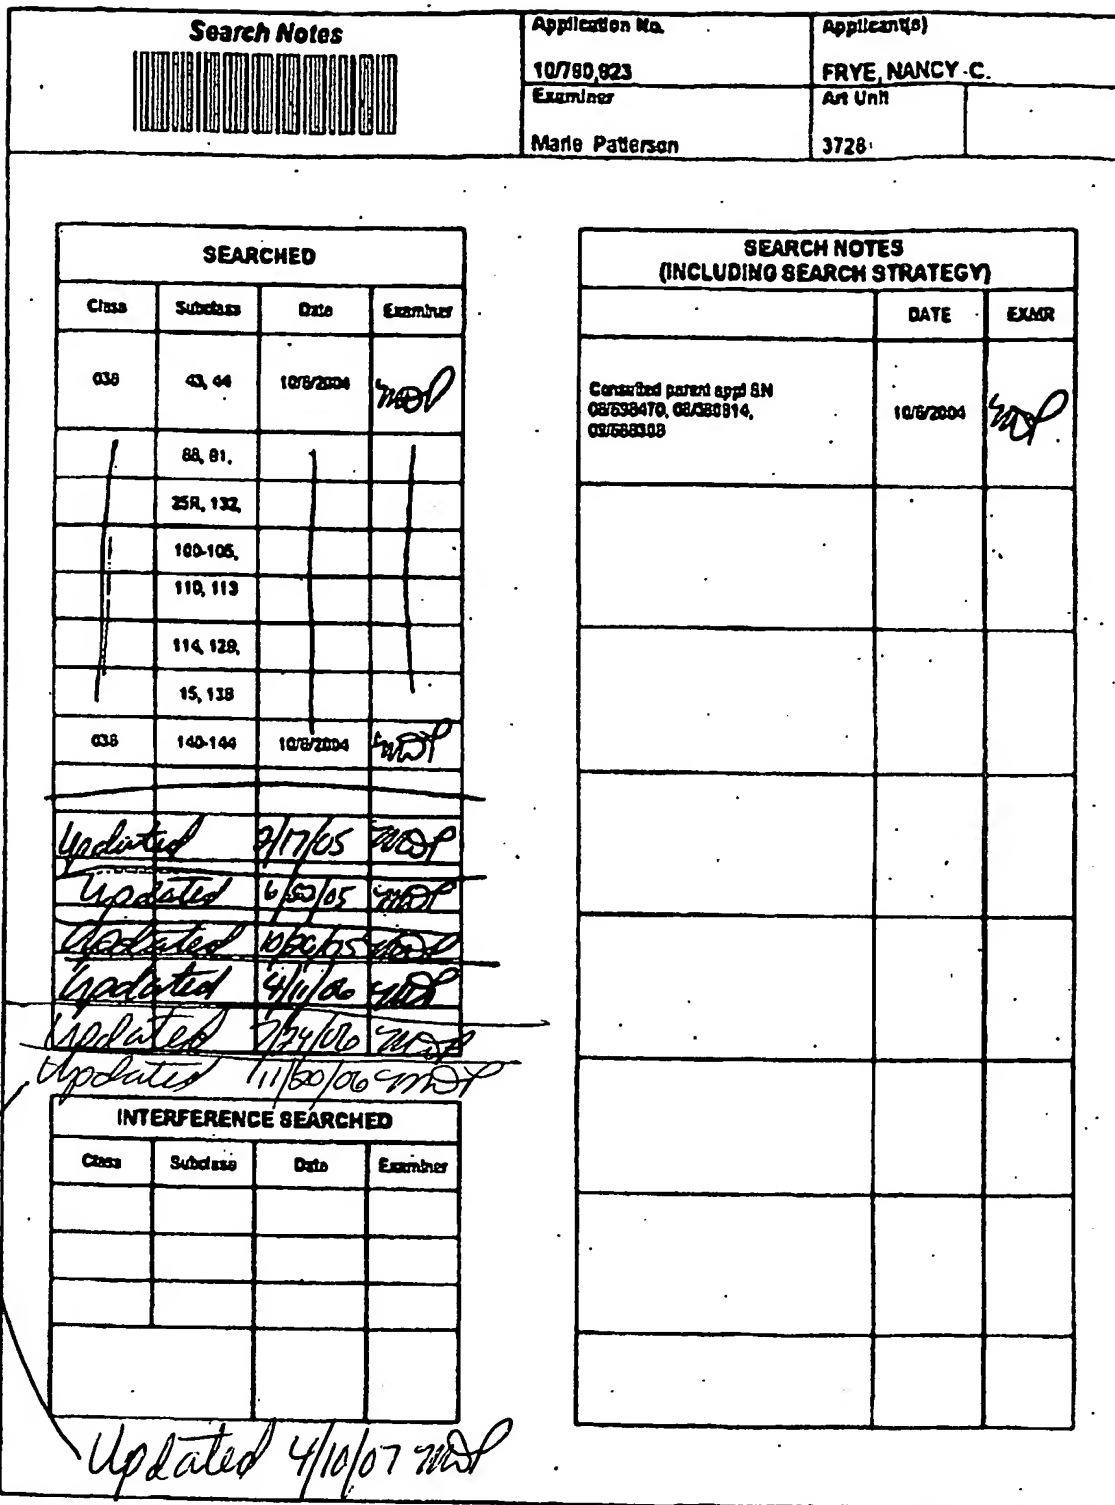 Search Notes
Application No.
Applicant(s)
10/780,923
FRYE, NANCY C.
Examiner
Art Unit
Marie Patterson
3728
SEARCHED
Class Subclass Date Examiner
036 43, 44 10/6/2004 MDP
88, 91,
25R, 132,
100-105,
110, 113
114, 129,
15, 138
036 140-144 10/6/2004 MDP
Updated 2/17/05 MDP
Updated MDP
Updated MDP
Updated 4/11/06 MDP
Updated 7/24/06 MDP
Updated 11/20/06 MDP
INTERFERENCE SEARCHED
Class Subclass Date Examiner
Updated 4/10/07 MDP
SEARCH NOTES
(INCLUDING SEARCH STRATEGY)
DATE EXMR
Consulted parent appl SN
10/6/2004 MDP